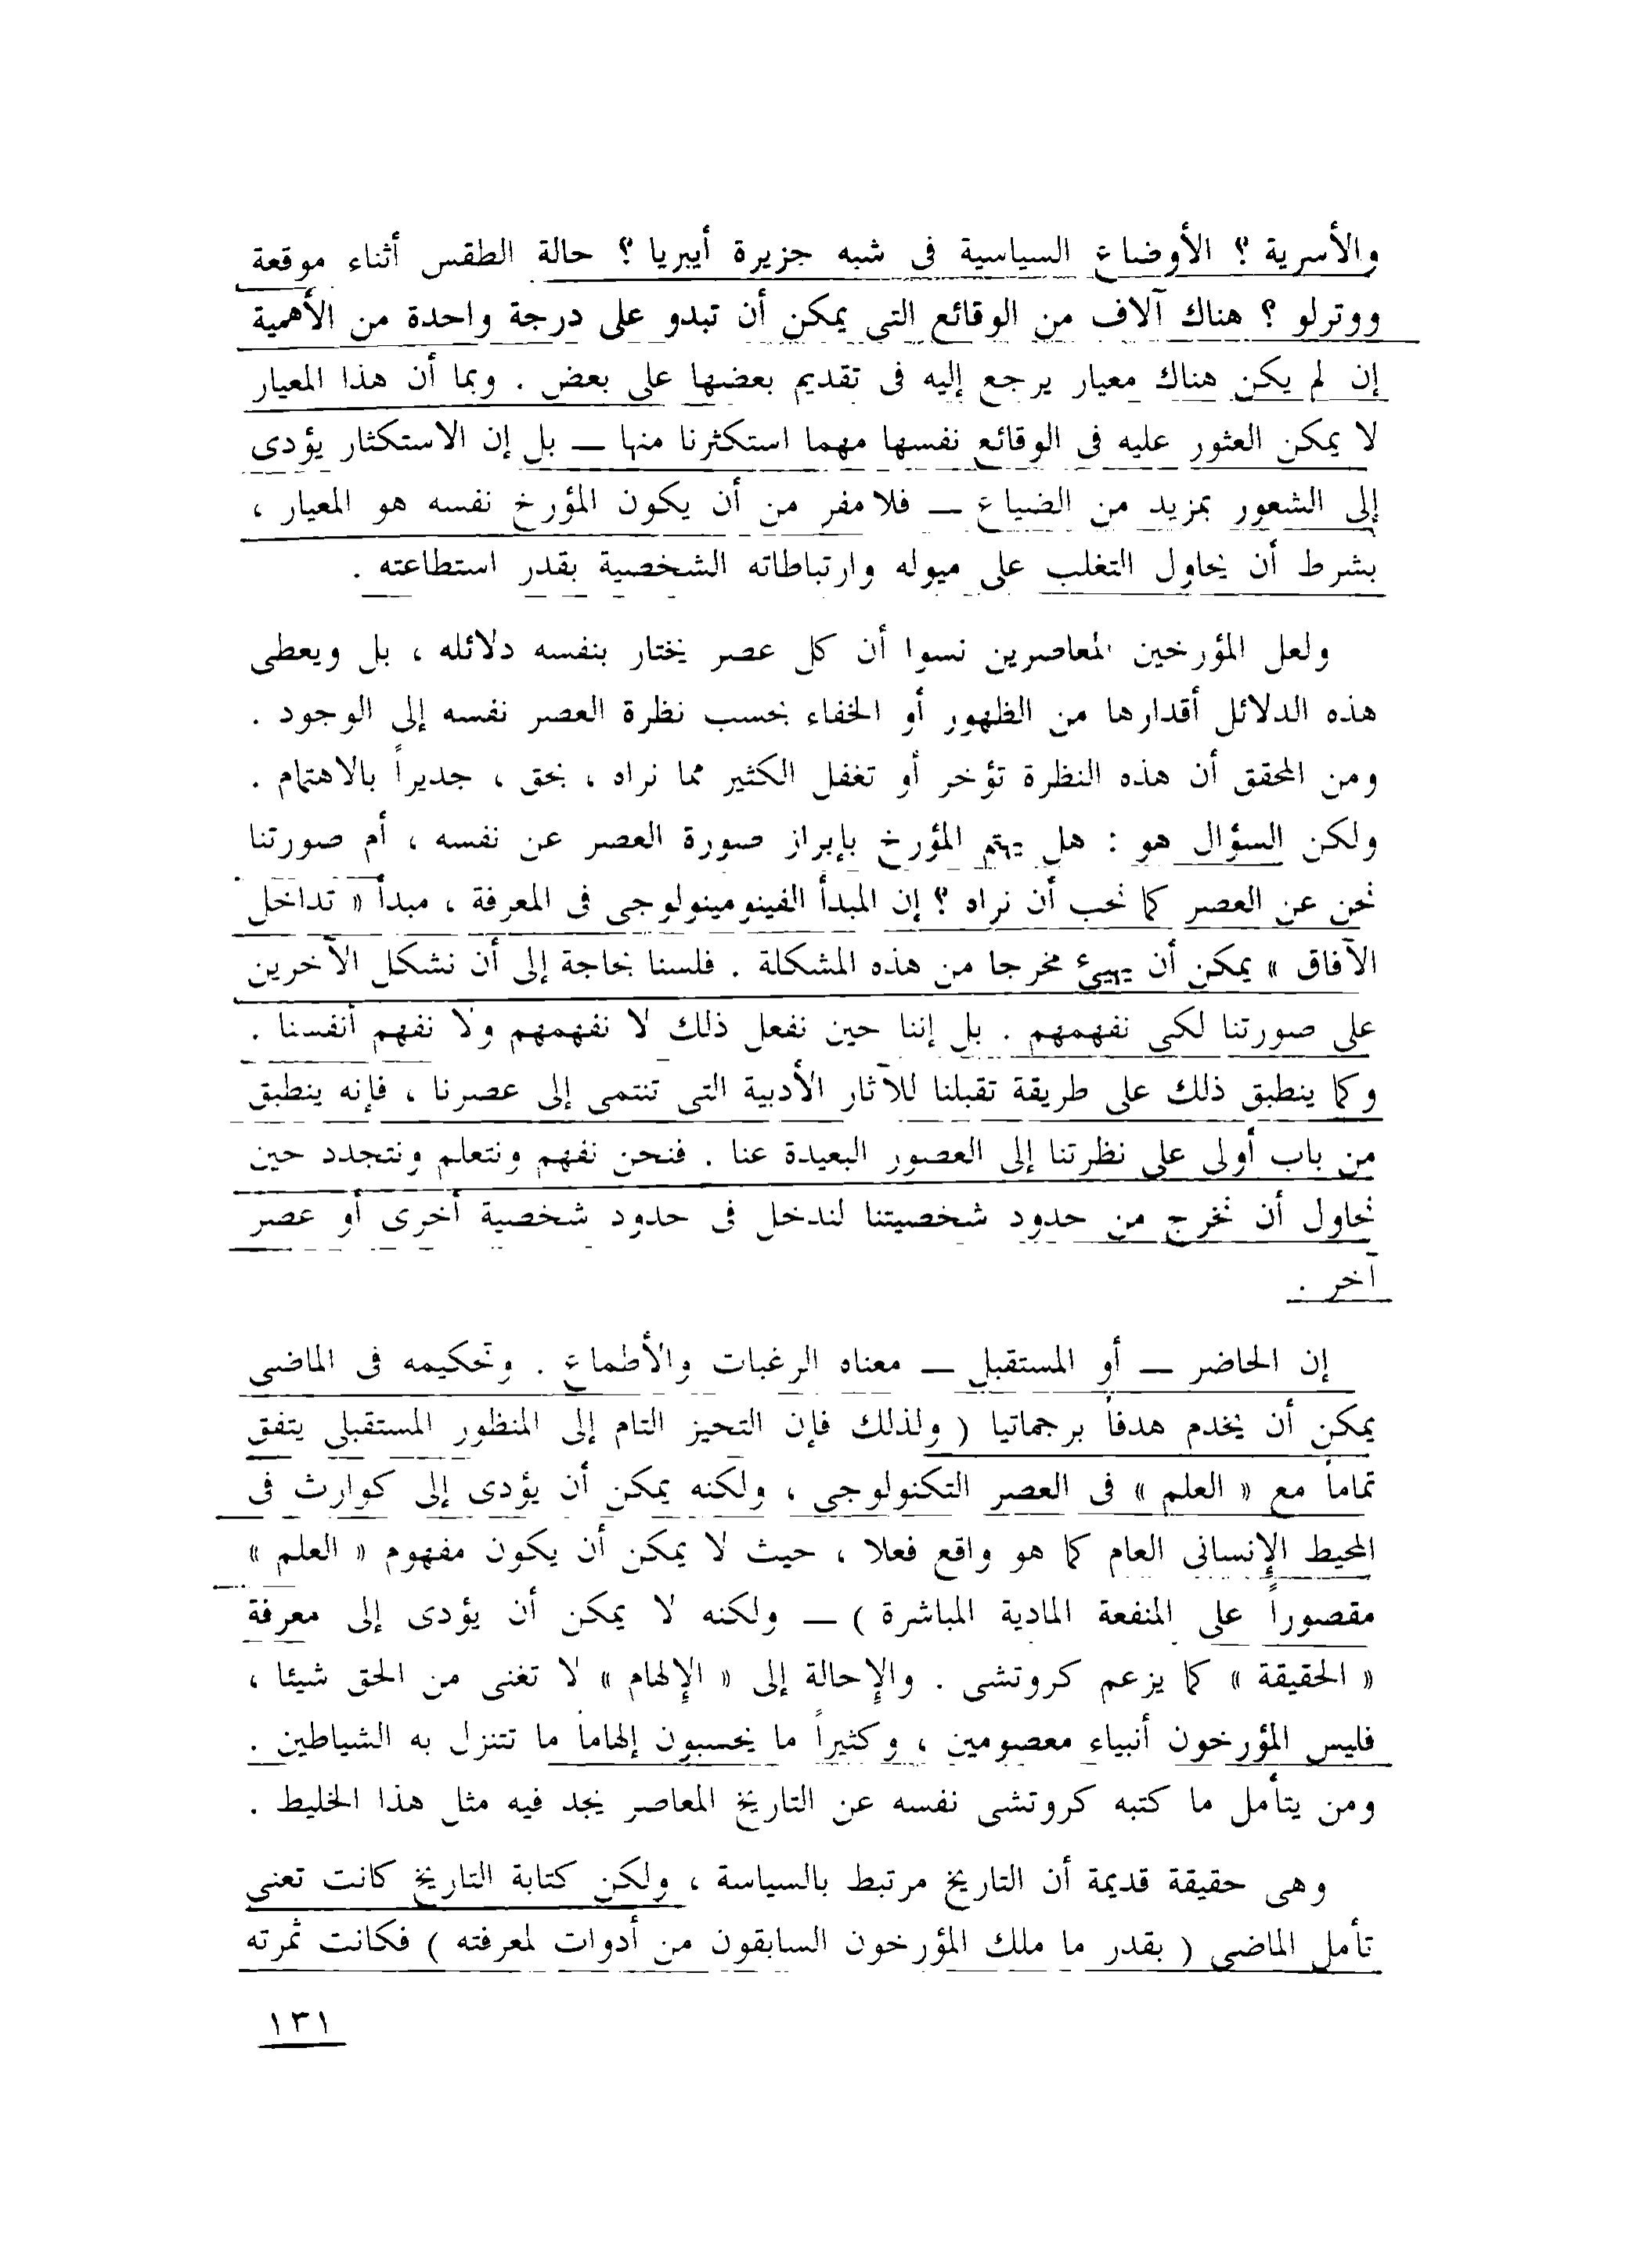 والأسرية ؟ الأوضاع السياسية فى شبه جزيرة أيبريا ؟ حالة الطقس أثناء موقعة
ووترلو ؟ هناك آلاف من الوقائع التى يمكن أن تبدو على درجة واحدة من الأهمية
إن لم يكن هناك معيار يرجع إليه فى تقديم بعضها على بعض . وبما أن هذا المعيار
لا يمكن العثور عليه فى الوقائع نفسها مهما استكثرنا منها — بل إن الاستكثار يؤدى
إلى الشعور بمزيد من الضياع — فلا مفر من أن يكون المؤرخ نفسه هو المعيار ،
بشرط أن يحاول التغلب على ميوله وارتباطاته الشخصية بقدر استطاعته .
ولعل المؤرخين المعاصرين نسوا أن كل عصر يختار بنفسه دلائله ، بل ويعطى
هذه الدلائل أقدارها من الظهور أو الخفاء بحسب نظرة العصر نفسه إلى الوجود .
ومن المحقق أن هذه النظرة تؤخر أو تغفل الكثير مما نراه ، بحق ، جديراً بالاهتمام .
ولكن السؤال هو : هل يهتم المؤرخ بإبراز صورة العصر عن نفسه ، أم صورتنا
نحن عن العصر كما نحب أن نراه ؟ إن المبدأ الفينومينولوجى فى المعرفة ، مبدأ « تداخل
الآفاق » يمكن أن يهيئ مخرجا من هذه المشكلة . فلسنا بحاجة إلى أن نشكل الآخرين
على صورتنا لكى نفهمهم . بل إننا حين نفعل ذلك لا نفهمهم ولا نفهم أنفسنا .
وكما ينطبق ذلك على طريقة تقبلنا للآثار الأدبية التى تنتمى إلى عصرنا ، فإنه ينطبق
من باب أولى على نظرتنا إلى العصور البعيدة عنا . فنحن نفهم ونتعلم ونتجدد حين
نحاول أن نخرج من حدود شخصيتنا لندخل فى حدود شخصية أخرى أو عصر
آخر .
إن الحاضر — أو المستقبل — معناه الرغبات والأطماع . وتحكيمه فى الماضى
يمكن أن يخدم هدفاً برجماتيا ( ولذلك فإن التحيز التام إلى المنظور المستقبلى يتفق
تماماً مع « العلم » فى العصر التكنولوجى ، ولكنه يمكن أن يؤدى إلى كوارث فى
المحيط الإنسانى العام كما هو واقع فعلا ، حيث لا يمكن أن يكون مفهوم « العلم »
مقصوراً على المنفعة المادية المباشرة ) — ولكنه لا يمكن أن يؤدى إلى معرفة
« الحقيقة » كما يزعم كروتشى . والإحالة إلى « الإلهام » لا تغنى من الحق شيئا ،
فليس المؤرخون أنبياء معصومين ، وكثيراً ما يحسبون إلهاماً ما تتنزل به الشياطين .
ومن يتأمل ما كتبه كروتشى نفسه عن التاريخ المعاصر يجد فيه مثل هذا الخليط .
وهى حقيقة قديمة أن التاريخ مرتبط بالسياسة ، ولكن كتابة التاريخ كانت تعنى
تأمل الماضى ( بقدر ما ملك المؤرخون السابقون من أدوات لمعرفته ) فكانت ثمرته
١٣١